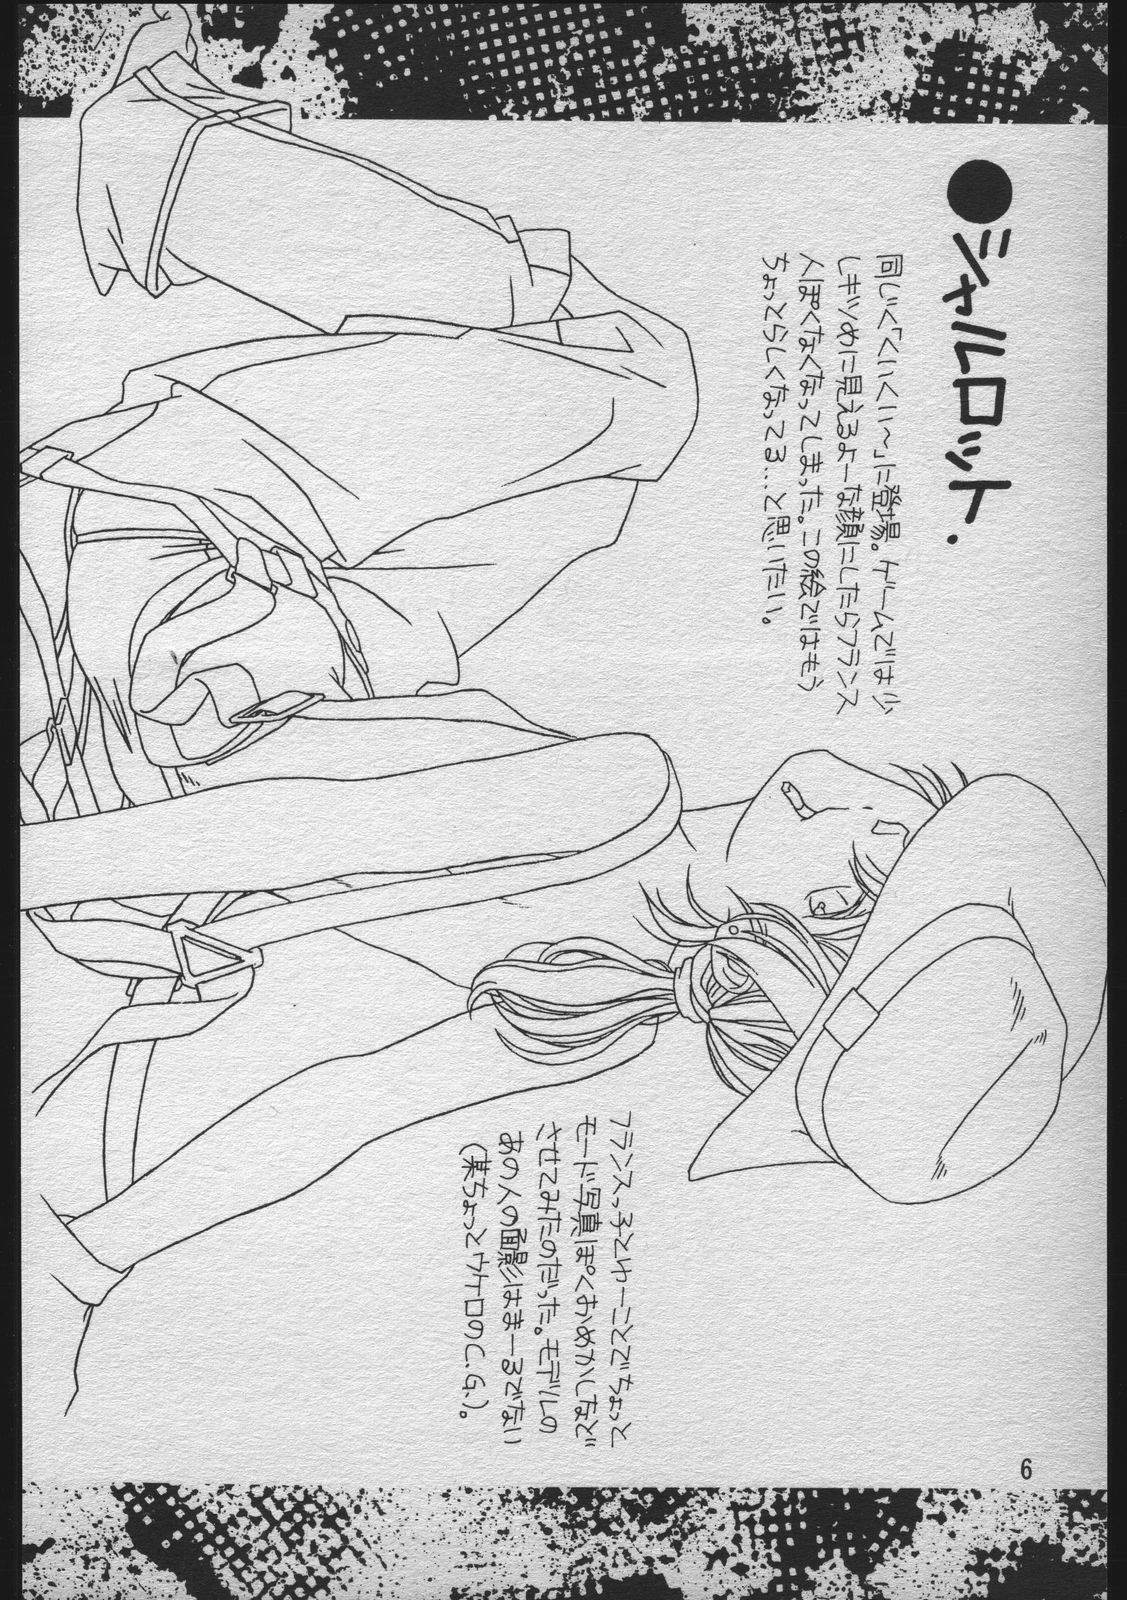 ●シャルロット.
同じく「くいくい〜」に登場。ゲームでは少
しキツめに見えるよーな顔にしたらフランス
人ぽくなくなってしまった。この絵ではもう
ちょっとらしくなってる…と思いたい。
フランスっ子とゆーことでちょっと
モード写真ぽくおめかしなど
させてみたのだった。モデルの
あの人の面影はまーるでない
(某ちょっとウケロのC.G.)。
6